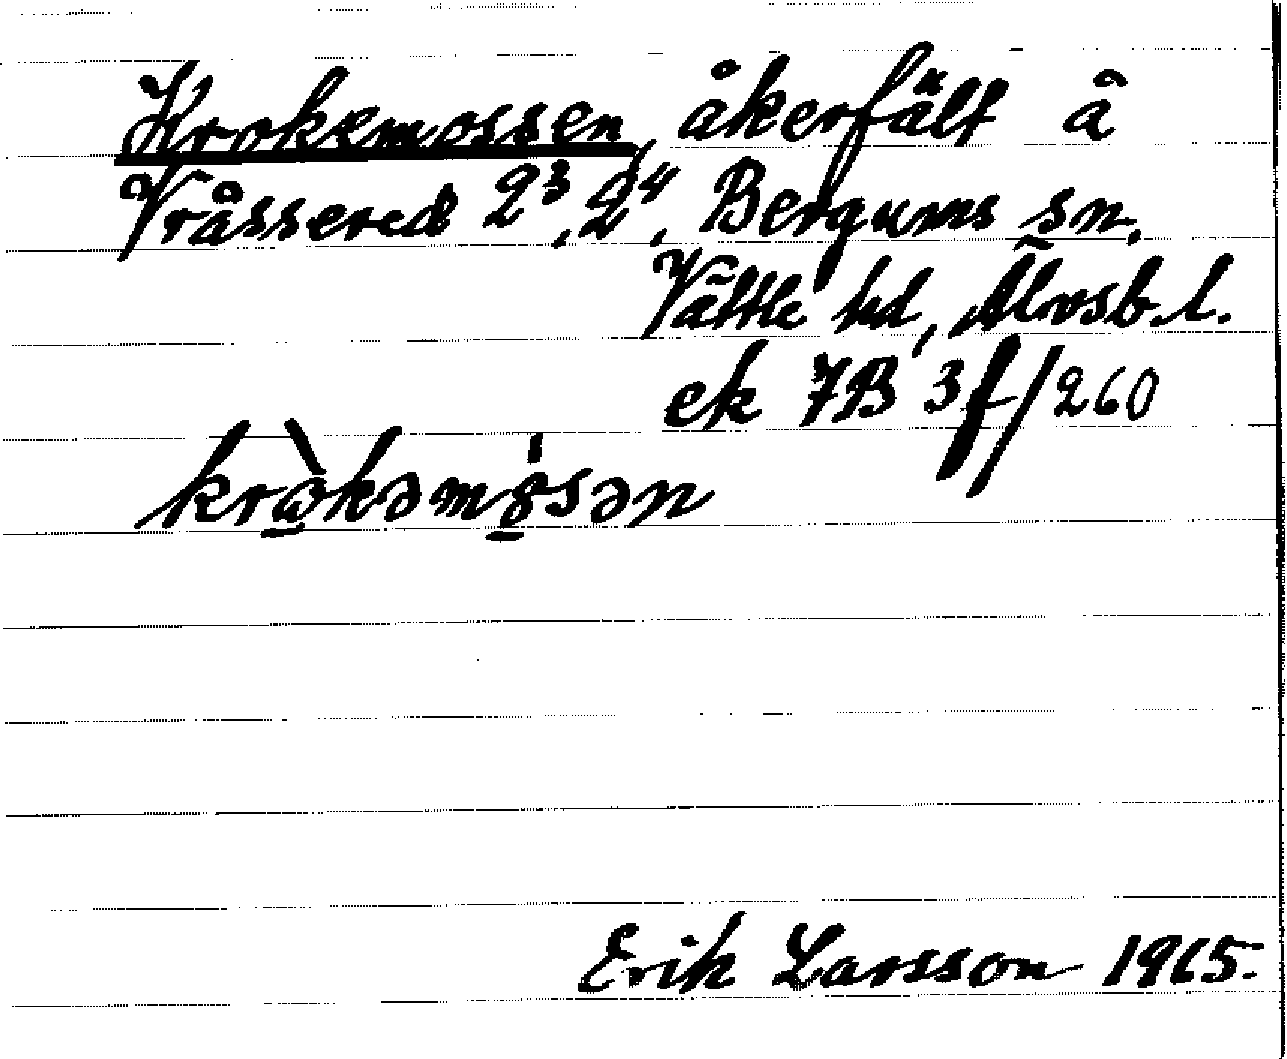 Krokemossen, åkerfält å
Vråssered 2³, 2⁴, Bergums sn.
Vättle hd, Älvsb. l.
ek 7B 3f/260
kròkəmósən
Erik Larsson 1965.